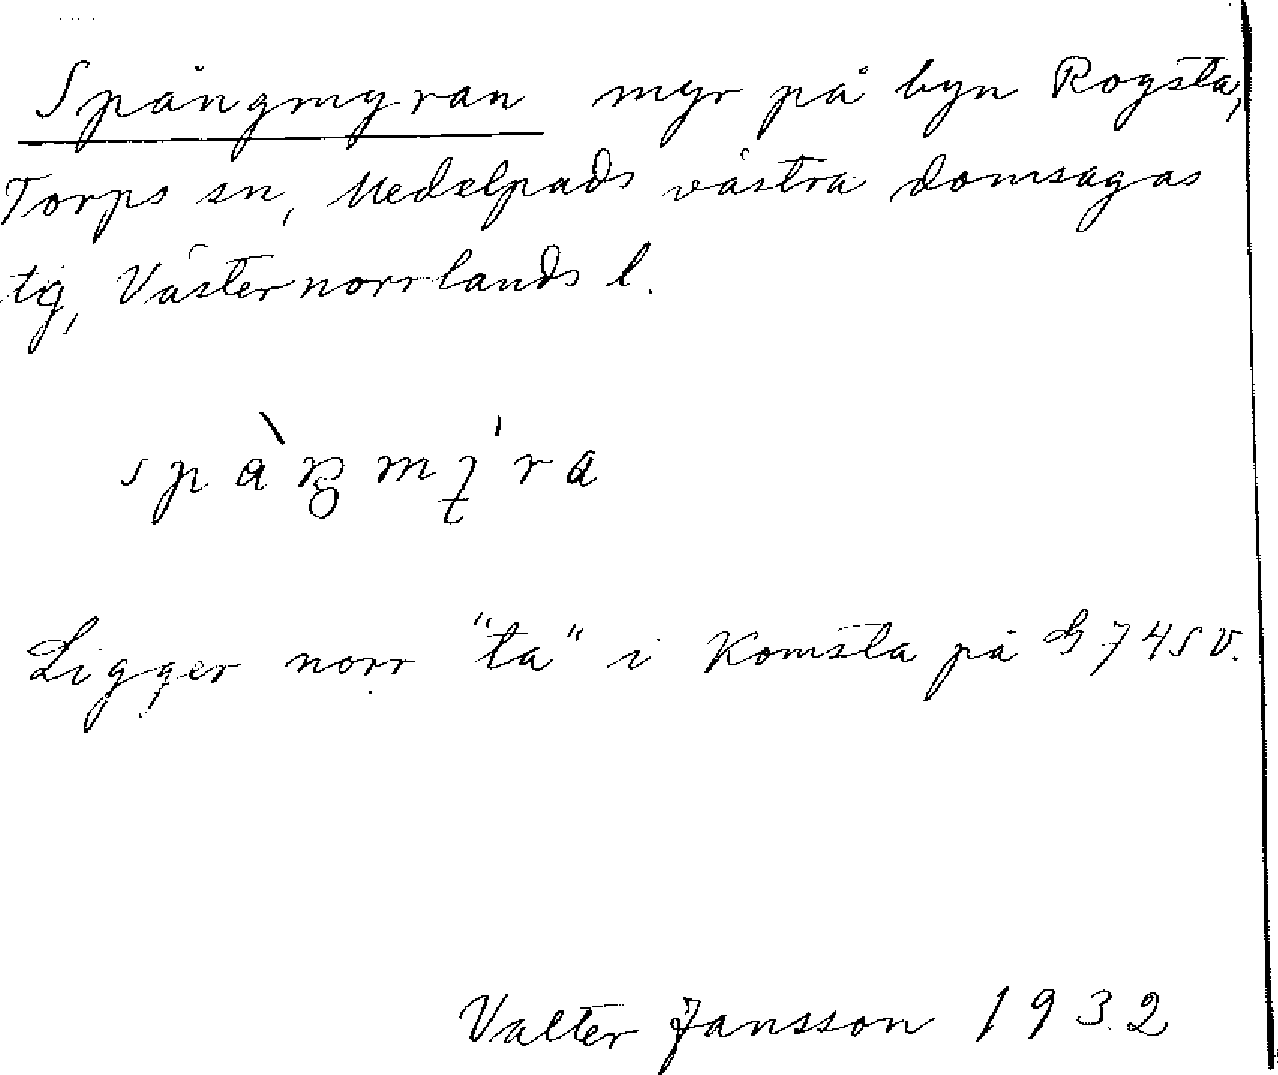 Spångmyran myr på byn Rogsta,
Torps sn, Medelpads västra domsagas
tg, Västernorrlands l.
Ligger norr "ta" i Komsta på G 74 S V.
Valter Jansson 1932